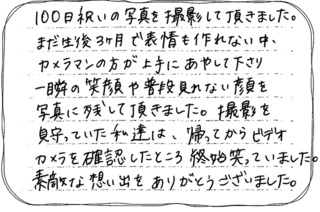 100日祝いの写真を撮影して頂きました。
まだ生後3ヶ月で表情も作れない中、
カメラマンの方が上手にあやして下さり
一瞬の笑顔や普段見れない顔を
写真に残して頂きました。撮影を
見守っていた私達は、帰ってからビデオ
カメラを確認したところ終始笑っていました。
素敵な想い出をありがとうございました。